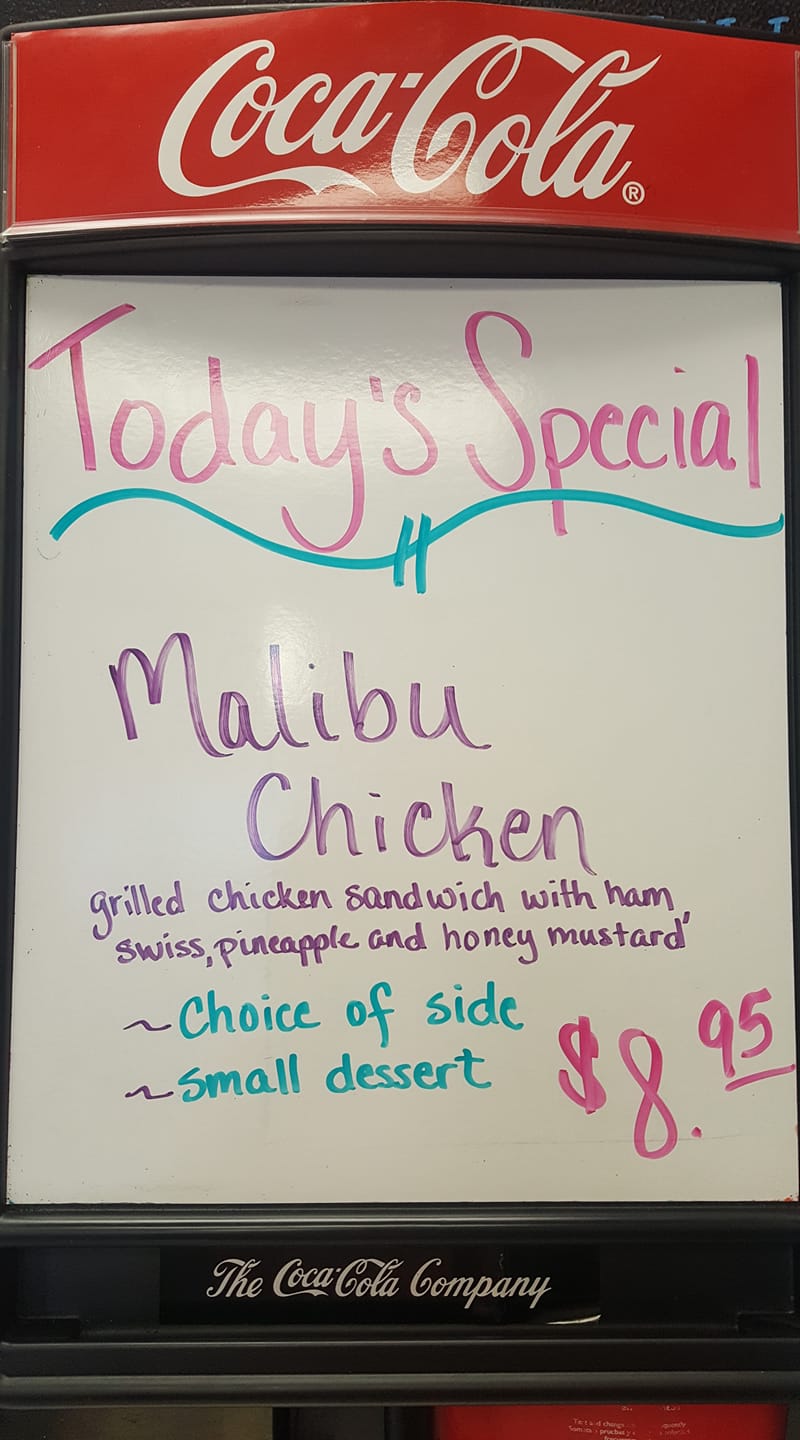 Coca-Cola®
Today's Special
Malibu
Chicken
grilled chicken sandwich with ham,
swiss, pineapple and honey mustard
~ Choice of side
~ Small dessert
$8.95
The Coca-Cola Company